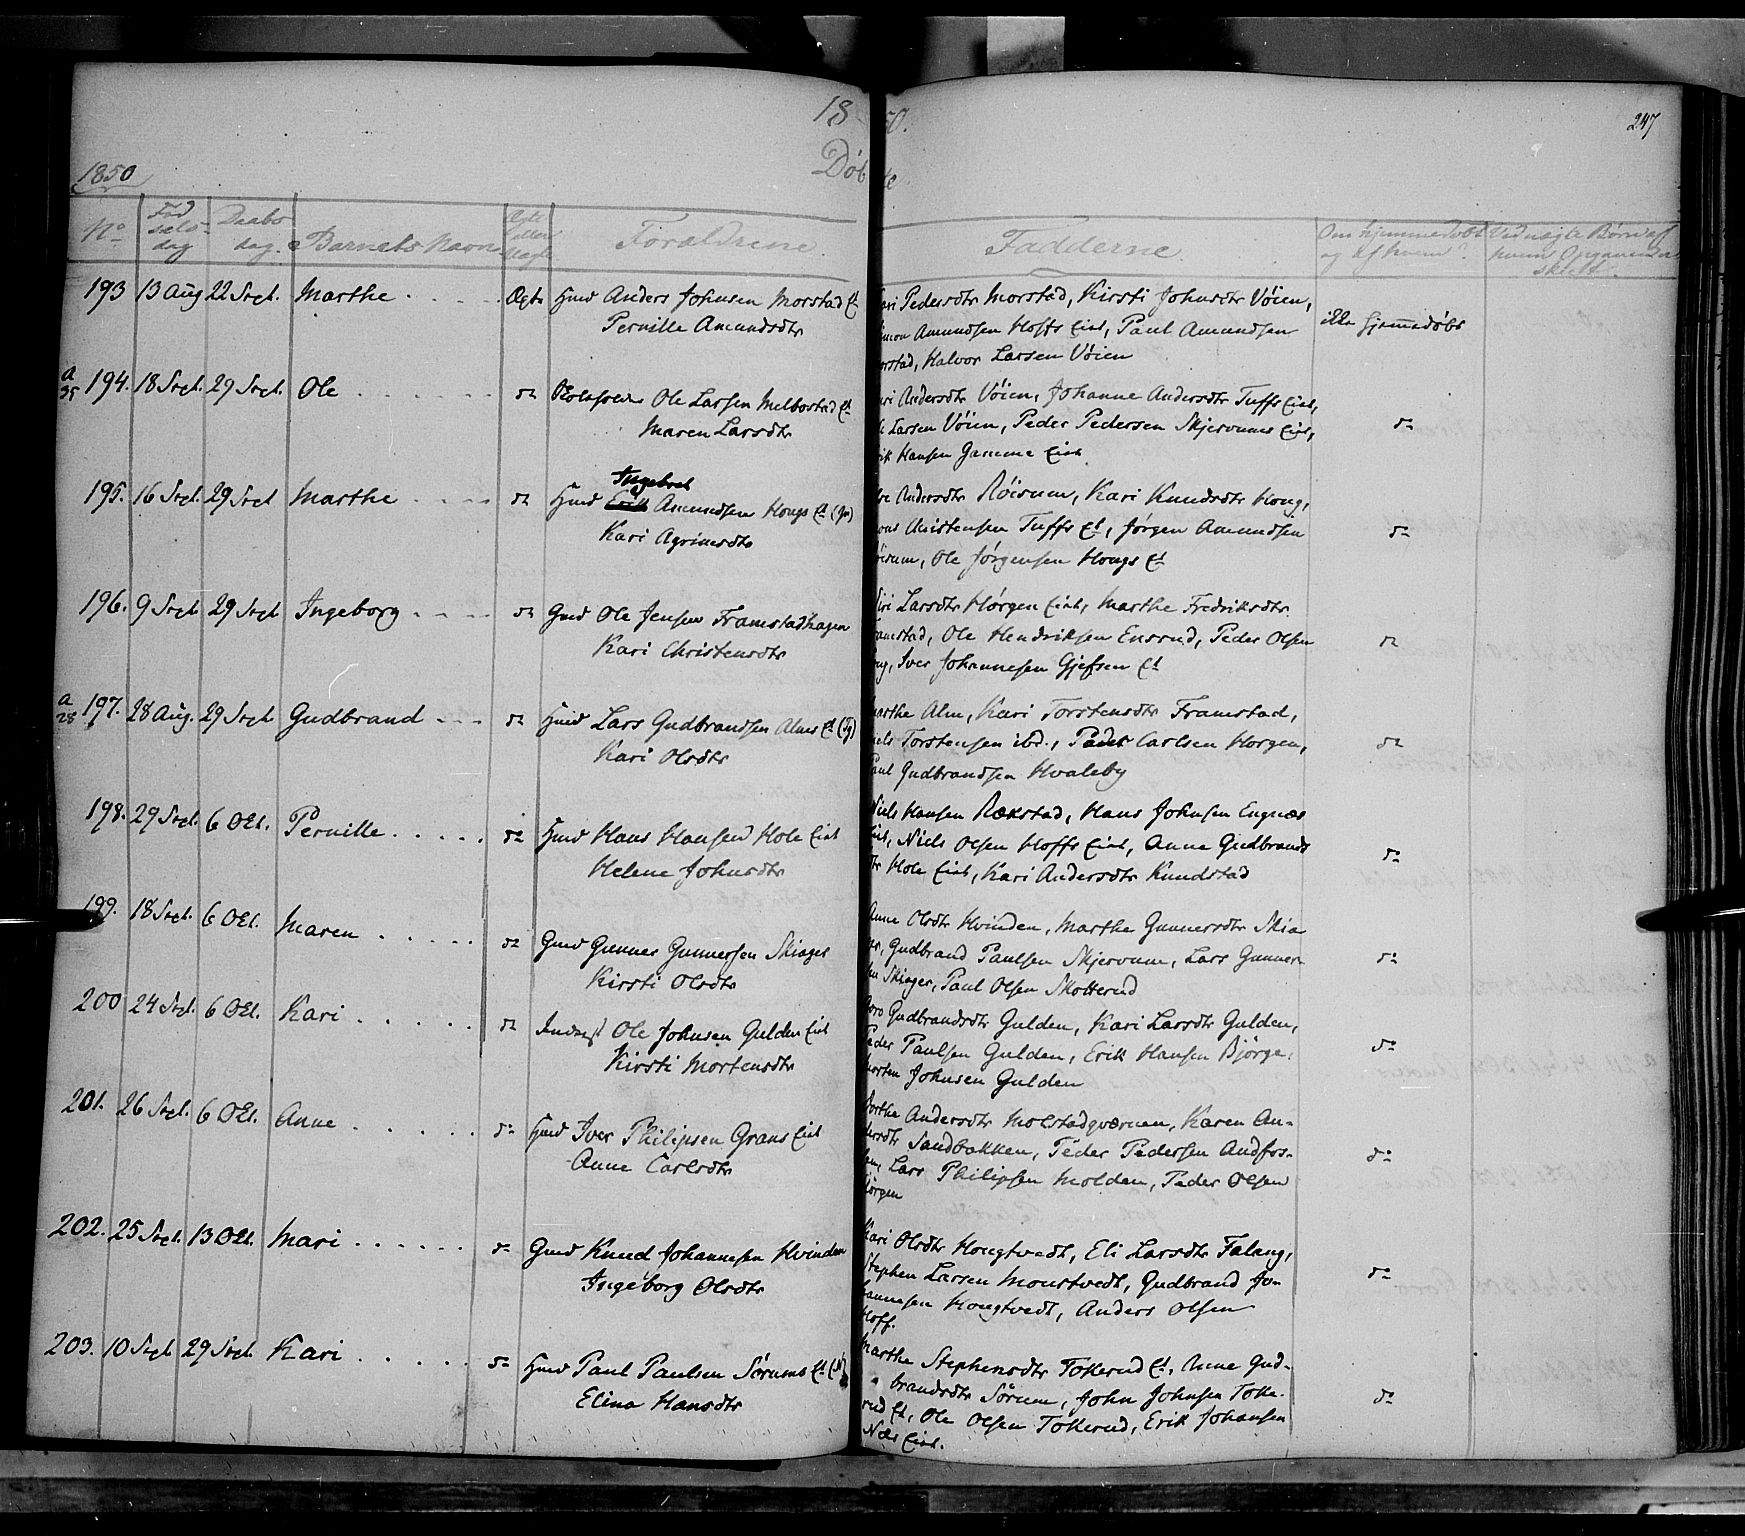 1850.
247
Döbte
1850
No
Födselsdag
Daabsdag.
Barnets Navn
Ægte eller Uægte
Forældrene.
Fadderne.
Om hjemmedøbt og af hvem?
193 13 Aug 22 Sept. Marthe Ægte Hmd Anders Johnsen Morstad Et
Pernille Amundsdtr
Pedersdtr Morstad, Kirsti Johnsdtr Vöien,
Amundsen Hoffs Eiet, Paul Amundsen
Halvor Larsen Vöien
ikke hjemedöbt
a 35 194. 18 Sept. 29 Sept. Ole do Ole Larsen Melbostad Et
Maren Larsdtr
Andersdtr Vöien, Johanne Andersdtr Tuffs Eiet,
Larsen Vöien, Peder Pedersen Skjervums Eiet,
Hansen Gamme Eiet
do
195. 16 Sept. 29 Sept Marthe do Hmd Ingebret
Erik Amundsen Hougs Et (Gr)
Kari Agrimsdtr
Andersdtr Röisum, Kari Knudsdtr Houg,
Christensen Tuffs Et, Jörgen Amundsen
Ole Jörgensen Hougs Et
do
196. 9 Sept 29 Sept Ingeborg do Gmd Ole Jensen Framstadhagen
Kari Christensdtr
Siri Larsdtr Hörgen Eiet, Marthe Fredriksdtr
Framstad, Ole Hendriksen Ensrud, Peder Olsen
Iver Johannesen Gjefsen Et
do
a 28 197. 28 Aug. 29 Sept Gudbrand do Hmd Lars Gudbrandsen Alms Et (Tg)
Kari Olsdtr
Marthe Alm, Kari Torstensdtr Framstad,
Niels Torstensen ibd., Peder Carlsen Horgen,
Paul Gudbrandsen Hvaleby
do
198. 29 Sept. 6 Okt. Pernille do Hmd Hans Hansen Hole Eiet
Helene Johnsdtr
Niels Hansen Rækstad, Hans Johnsen Engnæs
Eiet, Niels Olsen Hoffs Eiet, Anne Gudbrands
dtr Hole Eiet, Kari Andersdtr Knudstad
do
199. 18 Sept. 6 Okt. Maren do Gmd Gunner Gunnersen Skiager
Kirsti Olsdtr
Anne Olsdtr Hvinden, Marthe Gunnersdtr Skia
ger, Gudbrand Paulsen Skjervum, Lars Gunner-
sen Skiager, Paul Olsen Skotterud
do
200 24 Sept. 6 Okt. Kari do Inderst Ole Johnsen Gulden Eiet
Kirsti Mortensdtr
Goro Gudbrandsdtr Gulden, Kari Larsdtr Gulden,
Peder Paulsen Gulden, Erik Hansen Björge,
Morten Johnsen Gulden
do
201. 26 Sept. 6 Okt. Anne do Hmd Iver Philipsen Grans Eiet
Anne Carlsdtr
Andersdtr Molstadqværnen, Karen An-
dersdtr Sandbakken, Peder Pedersen Andfos-
sen, Lars Philipsen Molden, Peder Olsen
Hörgen
do
202. 25 Sept. 13 Okt. Mari do Gmd Knud Johannesen Hvinden
Ingeborg Olsdtr
Kari Olsdtr Hougtvedt, Eli Larsdtr Falang,
Stephen Larsen Monstvedt, Gudbrand Jo-
hannesen Hougtvedt, Anders Olsen
Hoff.
do
203. 10 Sept 29 Sept. Kari do Hmd Paul Paulsen Sörums Et
Elina Hansdtr
Marthe Stephensdtr Tokerud Et, Anne Gud-
brandsdtr Sörum, John Johnsen Toke-
rud Et, Ole Olsen Tokerud, Erik Johansen
Næs Eiet.
do